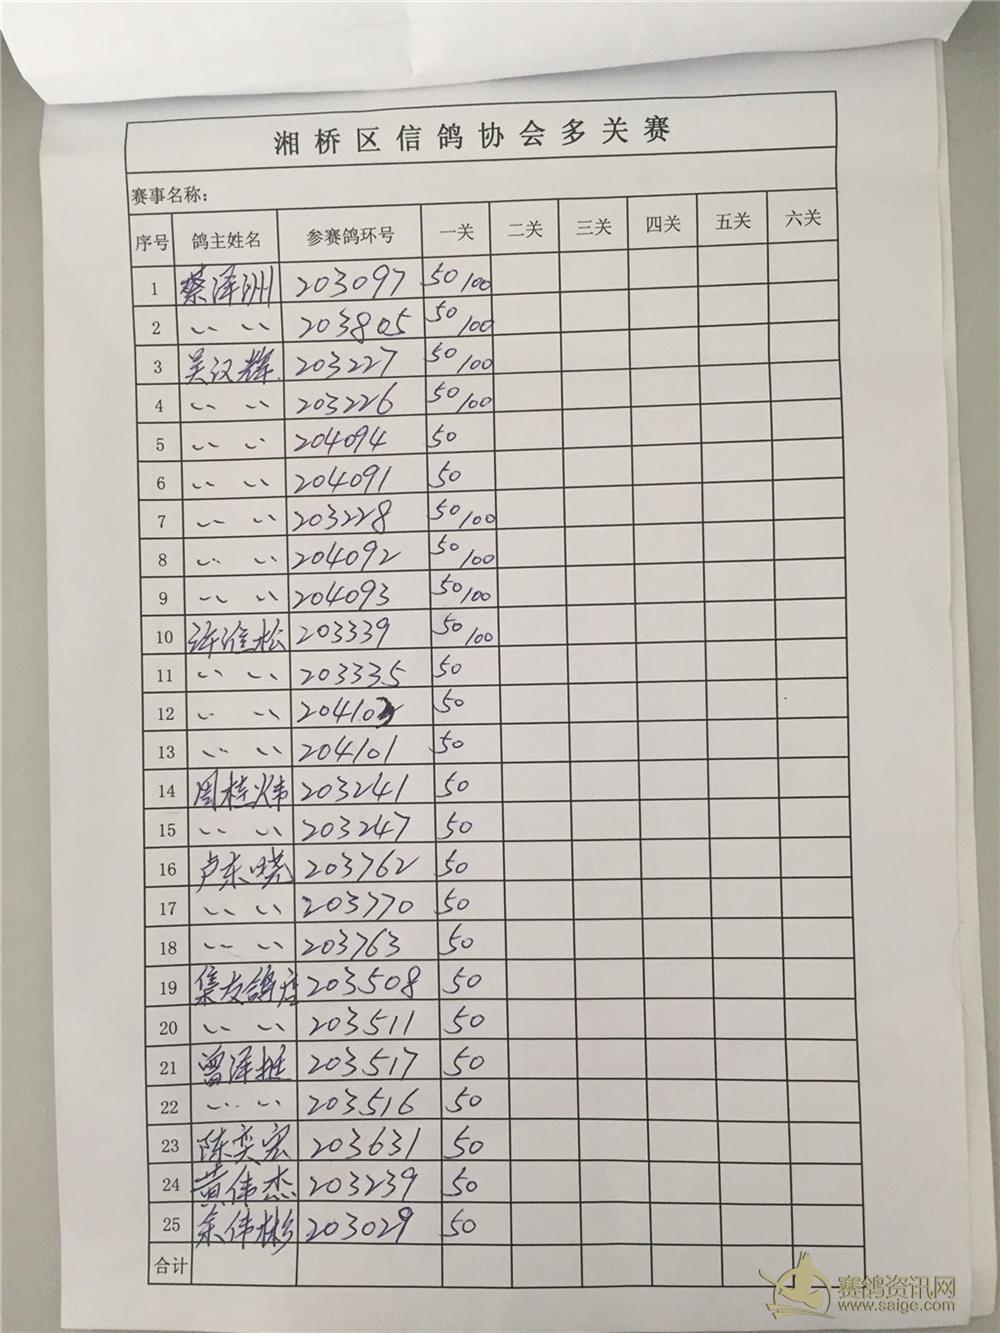 湘桥区信鸽协会多关赛
赛事名称:
序号 鸽主姓名 参赛鸽环号 一关 二关 三关 四关 五关 六关
1 蔡泽洲 203097 50/100
2 〃 〃 203805 50/100
3 吴汉辉 203227 50/100
4 〃 〃 203226 50/100
5 〃 〃 204094 50
6 〃 〃 204091 50
7 〃 〃 203228 50/100
8 〃 〃 204092 50/100
9 〃 〃 204093 50/100
10 许淮松 203339 50/100
11 〃 〃 203335 50
12 〃 〃 50
13 〃 〃 204101 50
14 周桂炜 203241 50
15 〃 〃 203247 50
16 卢东晓 203762 50
17 〃 〃 203770 50
18 〃 〃 203763 50
19 集友鸽 203508 50
20 〃 〃 203511 50
21 曾泽挺 203517 50
22 〃 〃 203516 50
23 陈奕宏 203631 50
24 黄伟杰 203239 50
25 余伟彬 203029 50
合计
赛鸽资讯网
www.saige.com